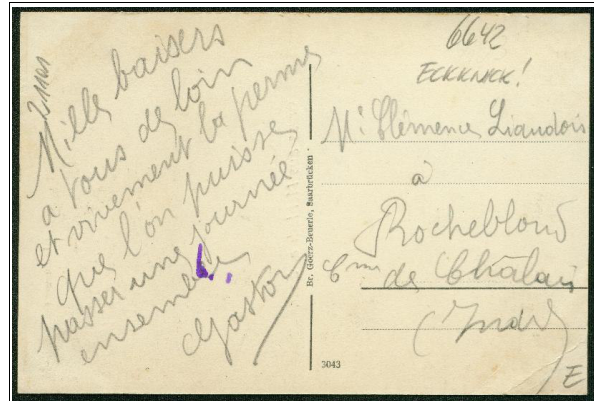 21101
Mille baisers
a vous de loin
et vivement la perme
que l'on puisse
passer une journée
ensemble
Gaston
Br. Goerz-Beuerle, Saarbrücken
3043
6642
Mle Clémence Liaudois
à
Rocheblond
Cne de Chalais
(Indre)
E